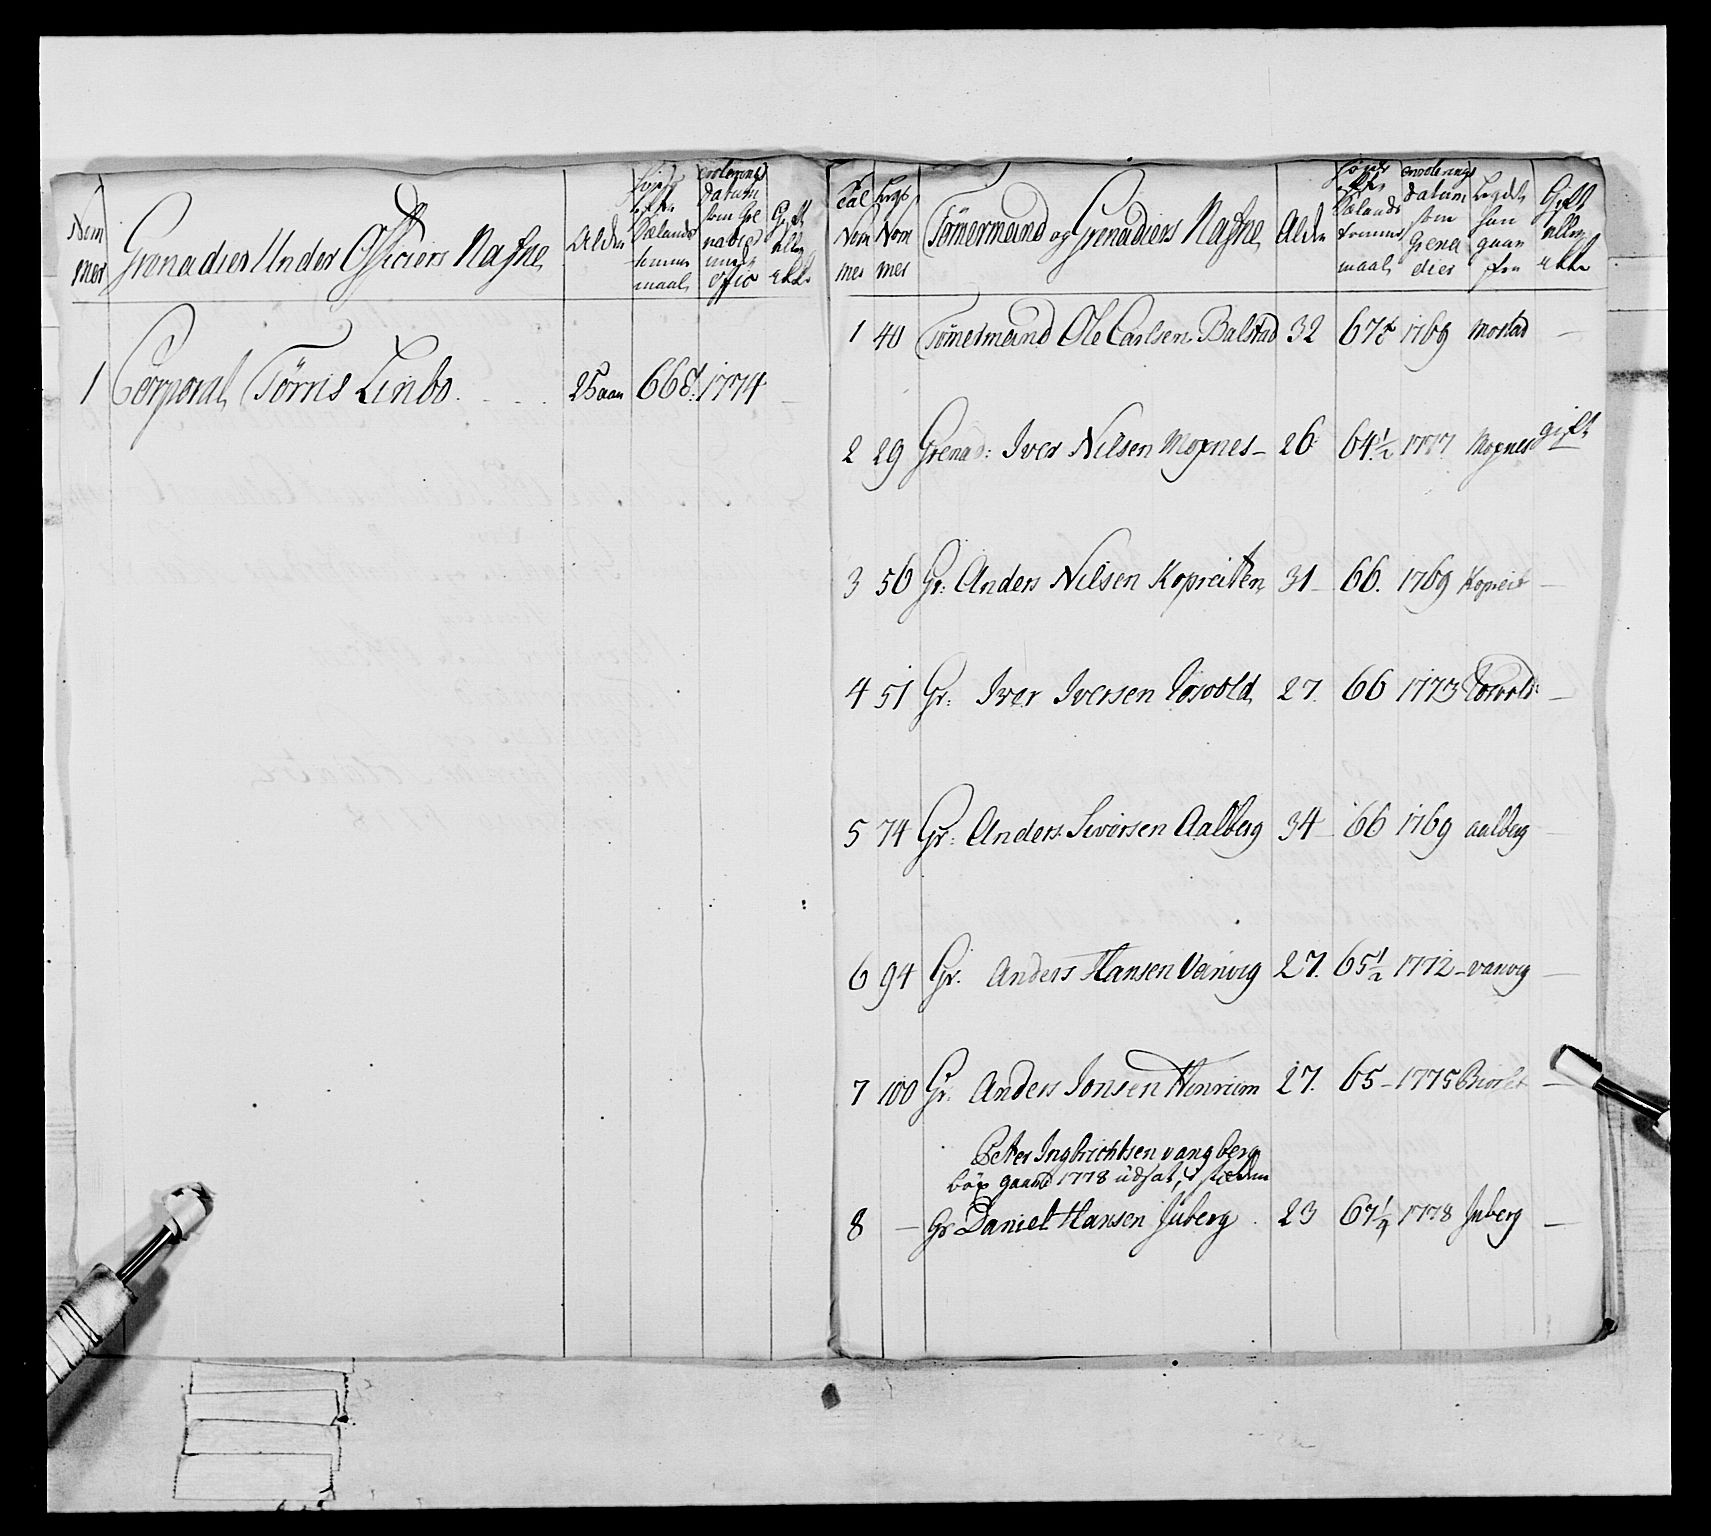 Nom mer
Grenadier Under Officiers Nafne
Alder
Sælands tomme maal
Datum som Gre nadeer under offic
Gift eller ekke
1 Corporal Törris Linbo 25 aar 66 1774
Tal Nom mer
Lægs Nom mer
Tömermænd og Grenadiers Nafne
Alder
Sælands tomme maal
Datum som Grena dier
Lægdet han gaar for
Gift eller ekke
1 40 Tömermænd Ole Carlsen Balstad 32 67 1769 Mostad —
2 29 Grenad: Iver Nilsen Moxnes — 26 64 1/2 1777 Moxnes gift
3 56 Gr: Anders Nilsen Kopreiten 31 — 66. 1769 Kopreit —
4 51 Gr: Iver Iversen 27 66 1773 —
5 74 Gr: Anders Siversen Aalberg 34 66 1769 aalberg —
6 94 Gr. Anders Hansen Vanvig 27. 65 1/2 1772 — vanvig —
7 100 Gr. Anders Jonsen Henriem 27. 65 — 1775 —
Peter Ingbrichtsen vangberg
1778 udsat, i stæden
8 — Gr Daniel Hansen Juberg 23 67 1/4 1778 Juberg —